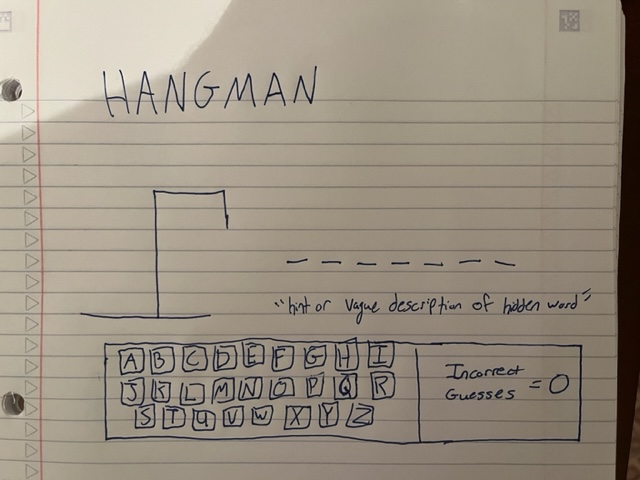 HANGMAN
"hint or vague description of hidden word"
A B C D E F G H I
J K L M N O P Q R
S T U V W X Y Z
Incorrect
Guesses = 0